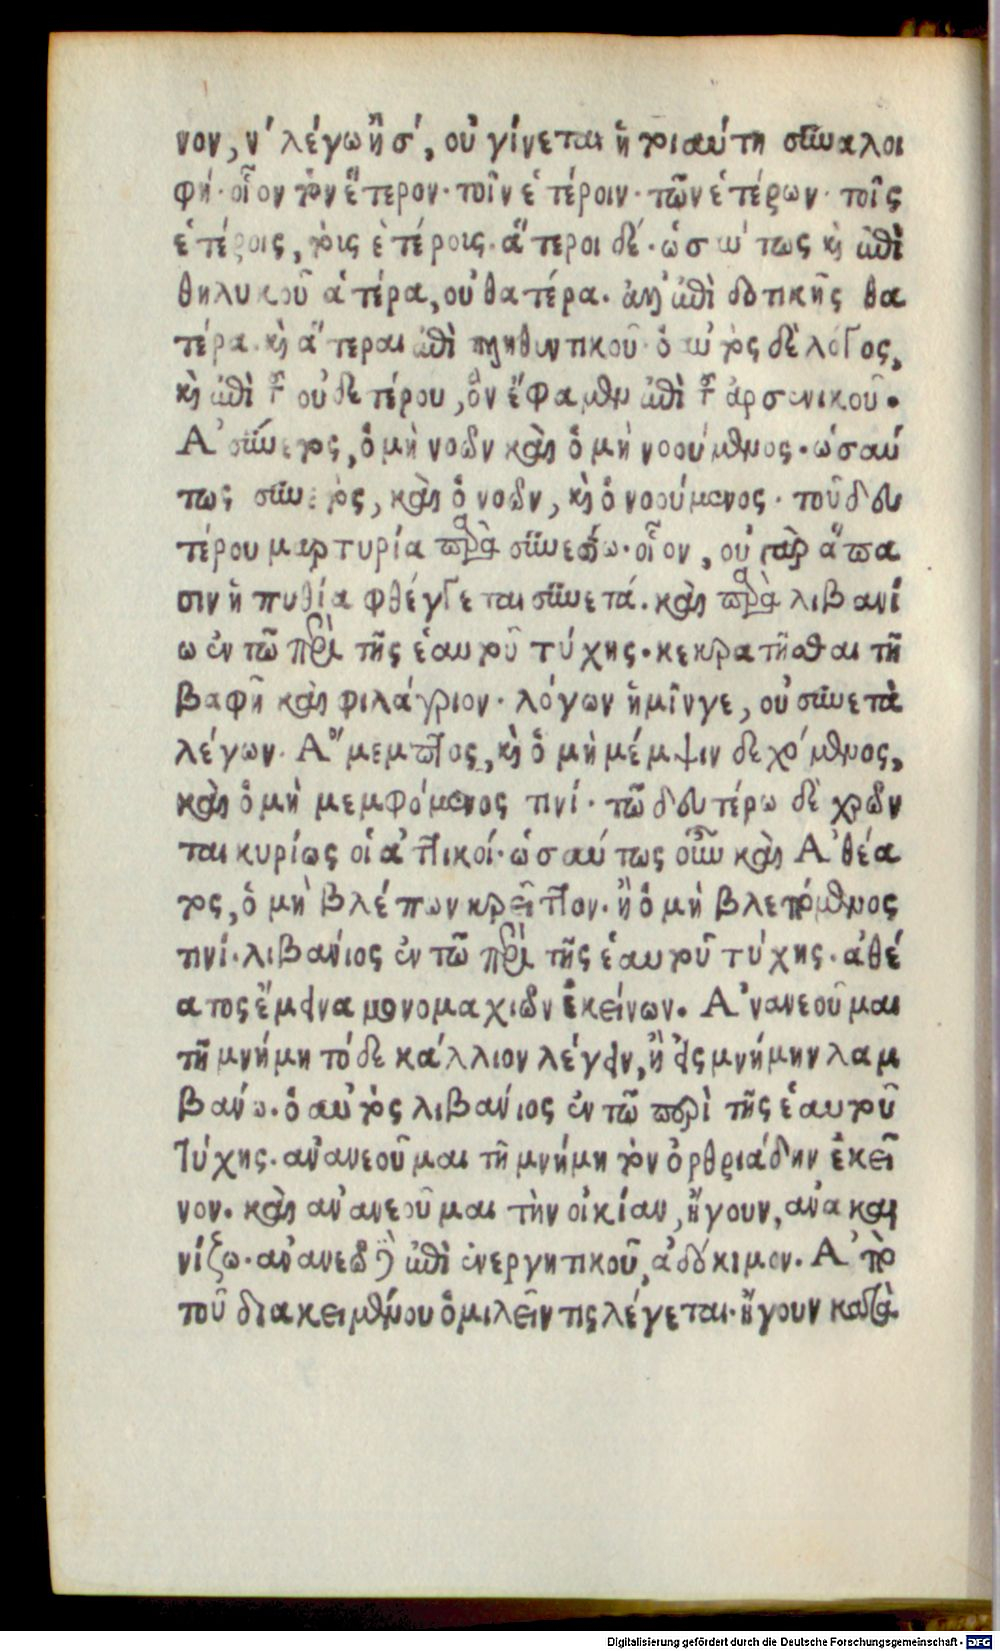 νον, ν´ λέγω ἢ σ´, οὐ γίνεται ἡ τοιαύτη συναλοι
φή· οἷον τὸν ἕτερον· τοῖν ἑτέροιν· τῶν ἑτέρων· τοῖς
ἑτέροις, τοὺς ἑτέρους. ἅτεροι δέ· ὡσαύτως καὶ ἐπὶ
θηλυκοῦ ἁτέρα, οὐ θατέρα. ἀλλ' ἐπὶ δοτικῆς θα
τέρα. καὶ ἅτεραι ἐπὶ πληθυντικοῦ· ὁ αὐτὸς δὲ λόγος,
καὶ ἐπὶ τοῦ οὐδετέρου, ὃν ἔφαμεν ἐπὶ τοῦ ἀρσενικοῦ.
Ἀσύνετος, ὁ μὴ νοῶν καὶ ὁ μὴ νοούμενος. ὡσαύ
τως συνετός, καὶ ὁ νοῶν, καὶ ὁ νοούμενος. τοῦ δευ
τέρου μαρτυρία παρὰ συνεσίω. οἷον, οὐ γὰρ ἅπα
σιν ἡ πυθία φθέγγεται συνετά. καὶ παρὰ λιβανί
ω ἐν τῷ περὶ τῆς ἑαυτοῦ τύχης. κεκρατῆσθαι τῇ
βαφῇ καὶ φιλάγριον. λόγων ἡμῖν γε, οὐ συνετὰ
λέγων. Ἄμεμπτος, καὶ ὁ μὴ μέμψιν δεχόμενος,
καὶ ὁ μὴ μεμφόμενος τινί. τῷ δευτέρω δὲ χρῶν
ται κυρίως οἱ ἀττικοί. ὡσαύτως οὖν καὶ Ἀθέα
τος, ὁ μὴ βλέπων κρεῖττον. ἢ ὁ μὴ βλεπόμενος
τινί. λιβάνιος ἐν τῷ περὶ τῆς ἑαυτοῦ τύχης. ἀθέ
ατος ἔμεινα μονομαχιῶν ἐκείνων. Ἀνανεοῦμαι
τῇ μνήμη τόδε κάλλιον λέγειν, ἢ εἰς μνήμην λαμ
βάνω. ὁ αὐτὸς λιβάνιος ἐν τῷ περὶ τῆς ἑαυτοῦ
τύχης. ἀνανεοῦμαι τῇ μνήμη τὸν ὀρθριάδην ἐκεῖ
νον. καὶ ἀνανεοῦμαι τὴν οἰκίαν, ἤγουν, ἀνακαι
νίζω. ἀνανεῶ δὲ ἐπὶ ἐνεργητικοῦ, ἀδόκιμον. Ἀπὸ
τοῦ διακειμένου ὁμιλεῖν τις λέγεται. ἤγουν κατὰ